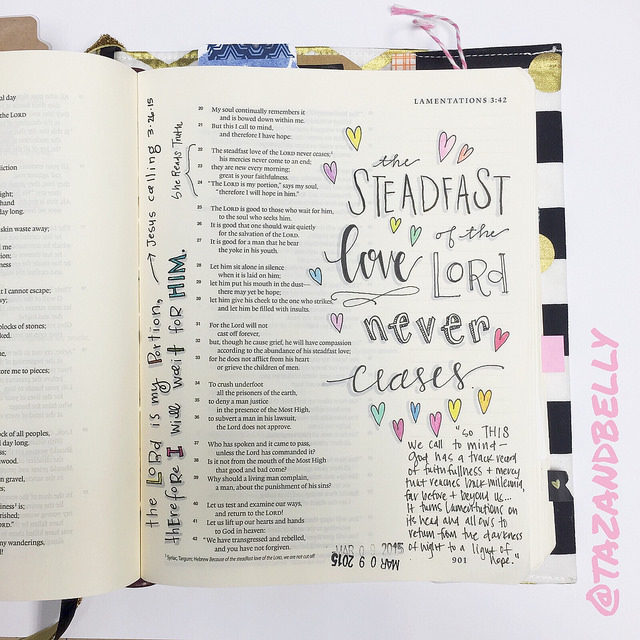 al day
the LORD
diction
ight;
hand
day long.
skin waste away;
I cannot escape;
blocks of stones;
ked.
ore me to pieces;
ock of all peoples,
l day long.
wood.
n gravel,
es;
LORD."
my wanderings,
the LORD is my Portion, → Jesus calling 3.26.15
therefore I will wait for HIM.
She Reads Truth
LAMENTATIONS 3:42
20 My soul continually remembers it
and is bowed down within me.
21 But this I call to mind,
and therefore I have hope:
22 The steadfast love of the LORD never ceases;
his mercies never come to an end;
23 they are new every morning;
great is your faithfulness.
24 "The LORD is my portion," says my soul,
"therefore I will hope in him."
25 The LORD is good to those who wait for him,
to the soul who seeks him.
26 It is good that one should wait quietly
for the salvation of the LORD.
27 It is good for a man that he bear
the yoke in his youth.
28 Let him sit alone in silence
when it is laid on him;
29 let him put his mouth in the dust—
there may yet be hope;
30 let him give his cheek to the one who strikes,
and let him be filled with insults.
31 For the Lord will not
cast off forever,
32 but, though he cause grief, he will have compassion
according to the abundance of his steadfast love;
33 for he does not afflict from his heart
or grieve the children of men.
34 To crush underfoot
all the prisoners of the earth,
35 to deny a man justice
in the presence of the Most High,
36 to subvert a man in his lawsuit,
the Lord does not approve.
37 Who has spoken and it came to pass,
unless the Lord has commanded it?
38 Is it not from the mouth of the Most High
that good and bad come?
39 Why should a living man complain,
a man, about the punishment of his sins?
40 Let us test and examine our ways,
and return to the LORD!
41 Let us lift up our hearts and hands
to God in heaven:
42 "We have transgressed and rebelled,
and you have not forgiven.
Syriac, Targum; Hebrew Because of the steadfast love of the LORD, we are not cut off
the
STEADFAST
love of the
LORD
never
ceases.
"so THIS
we call to mind —
God has a track record
of faithfullness + mercy
that reaches back millennia,
far before + beyond us...
It turns Lamentations on
its head and allows to
return from the darkness
of night to a light of
hope."
MAR 0 9 2015
MAR 0 9 2015
901
@TAZANDBELLY